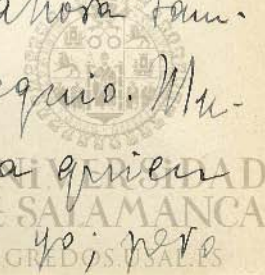 ahora tam-
equio. Mu-
a quien
yo; pero
UNiVERSiDAD
SALAMANCA
GREDOS.USAL.ES